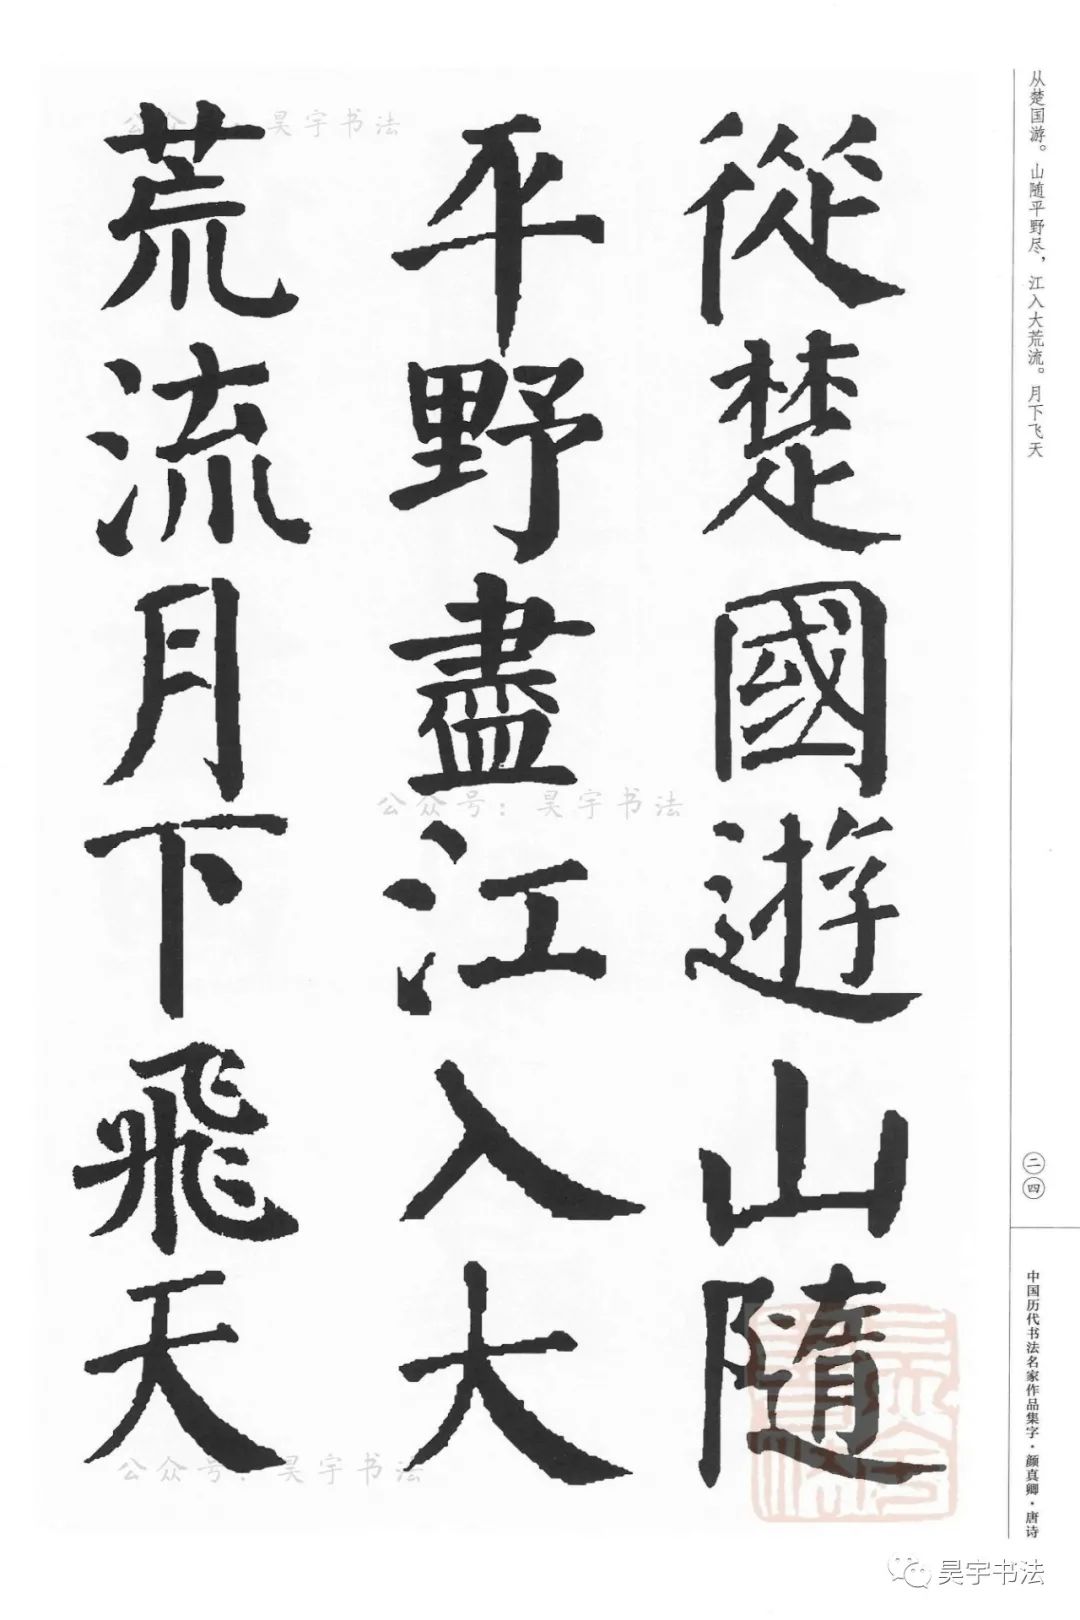 從楚國遊山隨
平野盡江入大
荒流月下飛天
从楚国游。山随平野尽，江入大荒流。月下飞天
二四
中国历代书法名家作品集字·颜真卿·唐诗
公众号：昊宇书法
公众号：昊宇书法
公众号：昊宇书法
昊宇书法